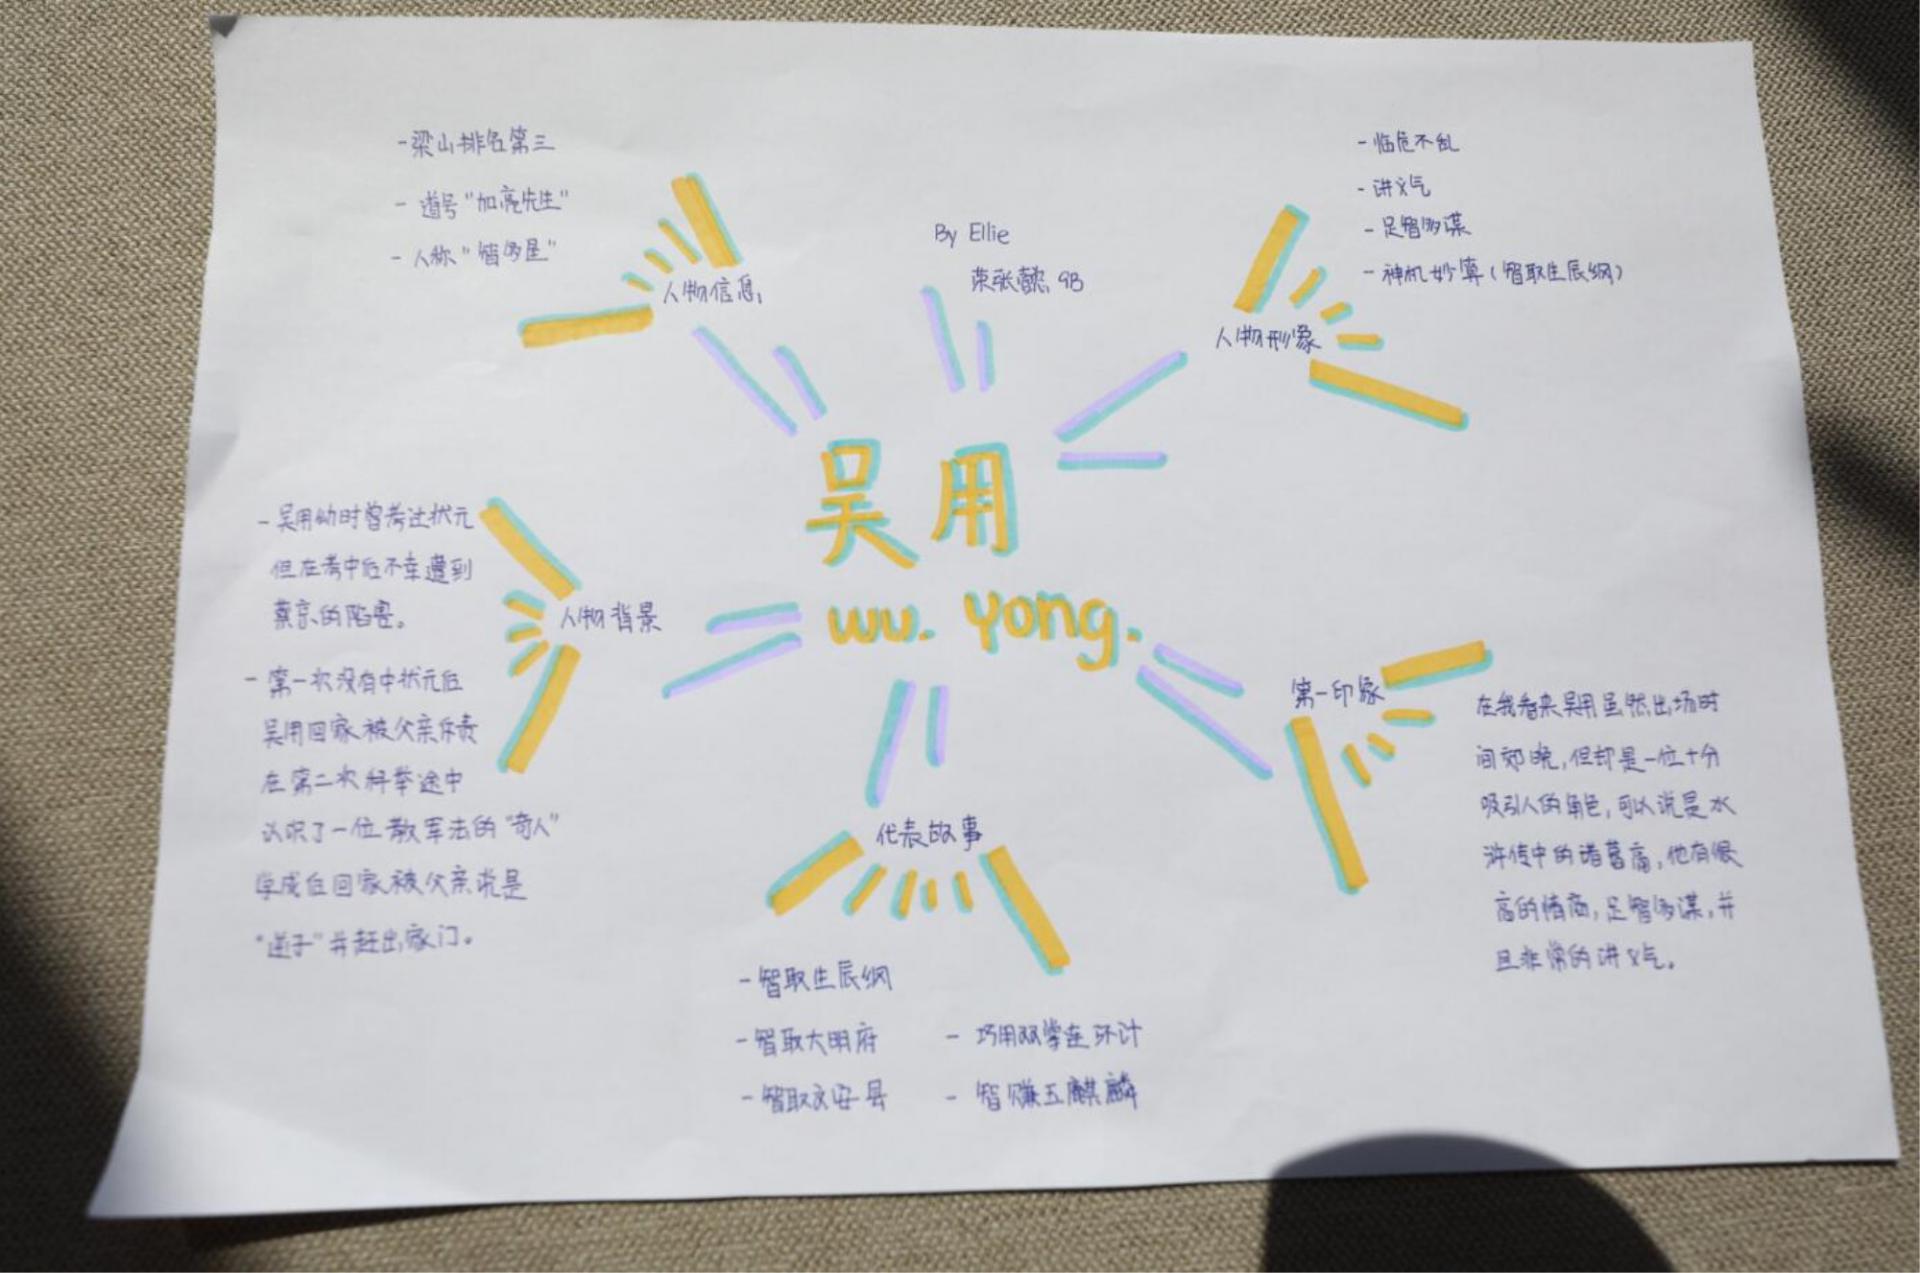 By Ellie
荣张懿 9B
吴用
wu. yong.
人物信息
-梁山排名第三
- 道号"加亮先生"
- 人称"智多星"
人物形象
- 临危不乱
- 讲义气
- 足智多谋
- 神机妙算(智取生辰纲)
人物背景
- 吴用幼时曾考过状元
但在考中后不幸遭到
蔡京的陷害。
- 第一次没有中状元后
吴用回家被父亲斥责
在第二次科举途中
认识了一位教军法的"奇人"
学成后回家被父亲说是
"逆子"并赶出家门。
代表故事
-智取生辰纲
-智取大明府
-智取文安县
- 巧用双掌连环计
- 智赚玉麒麟
第一印象
在我看来吴用虽然出场时
间郊晚,但却是一位十分
吸引人的角色,可以说是水
浒传中的诸葛亮,他有很
高的情商,足智多谋,并
且非常的讲义气。